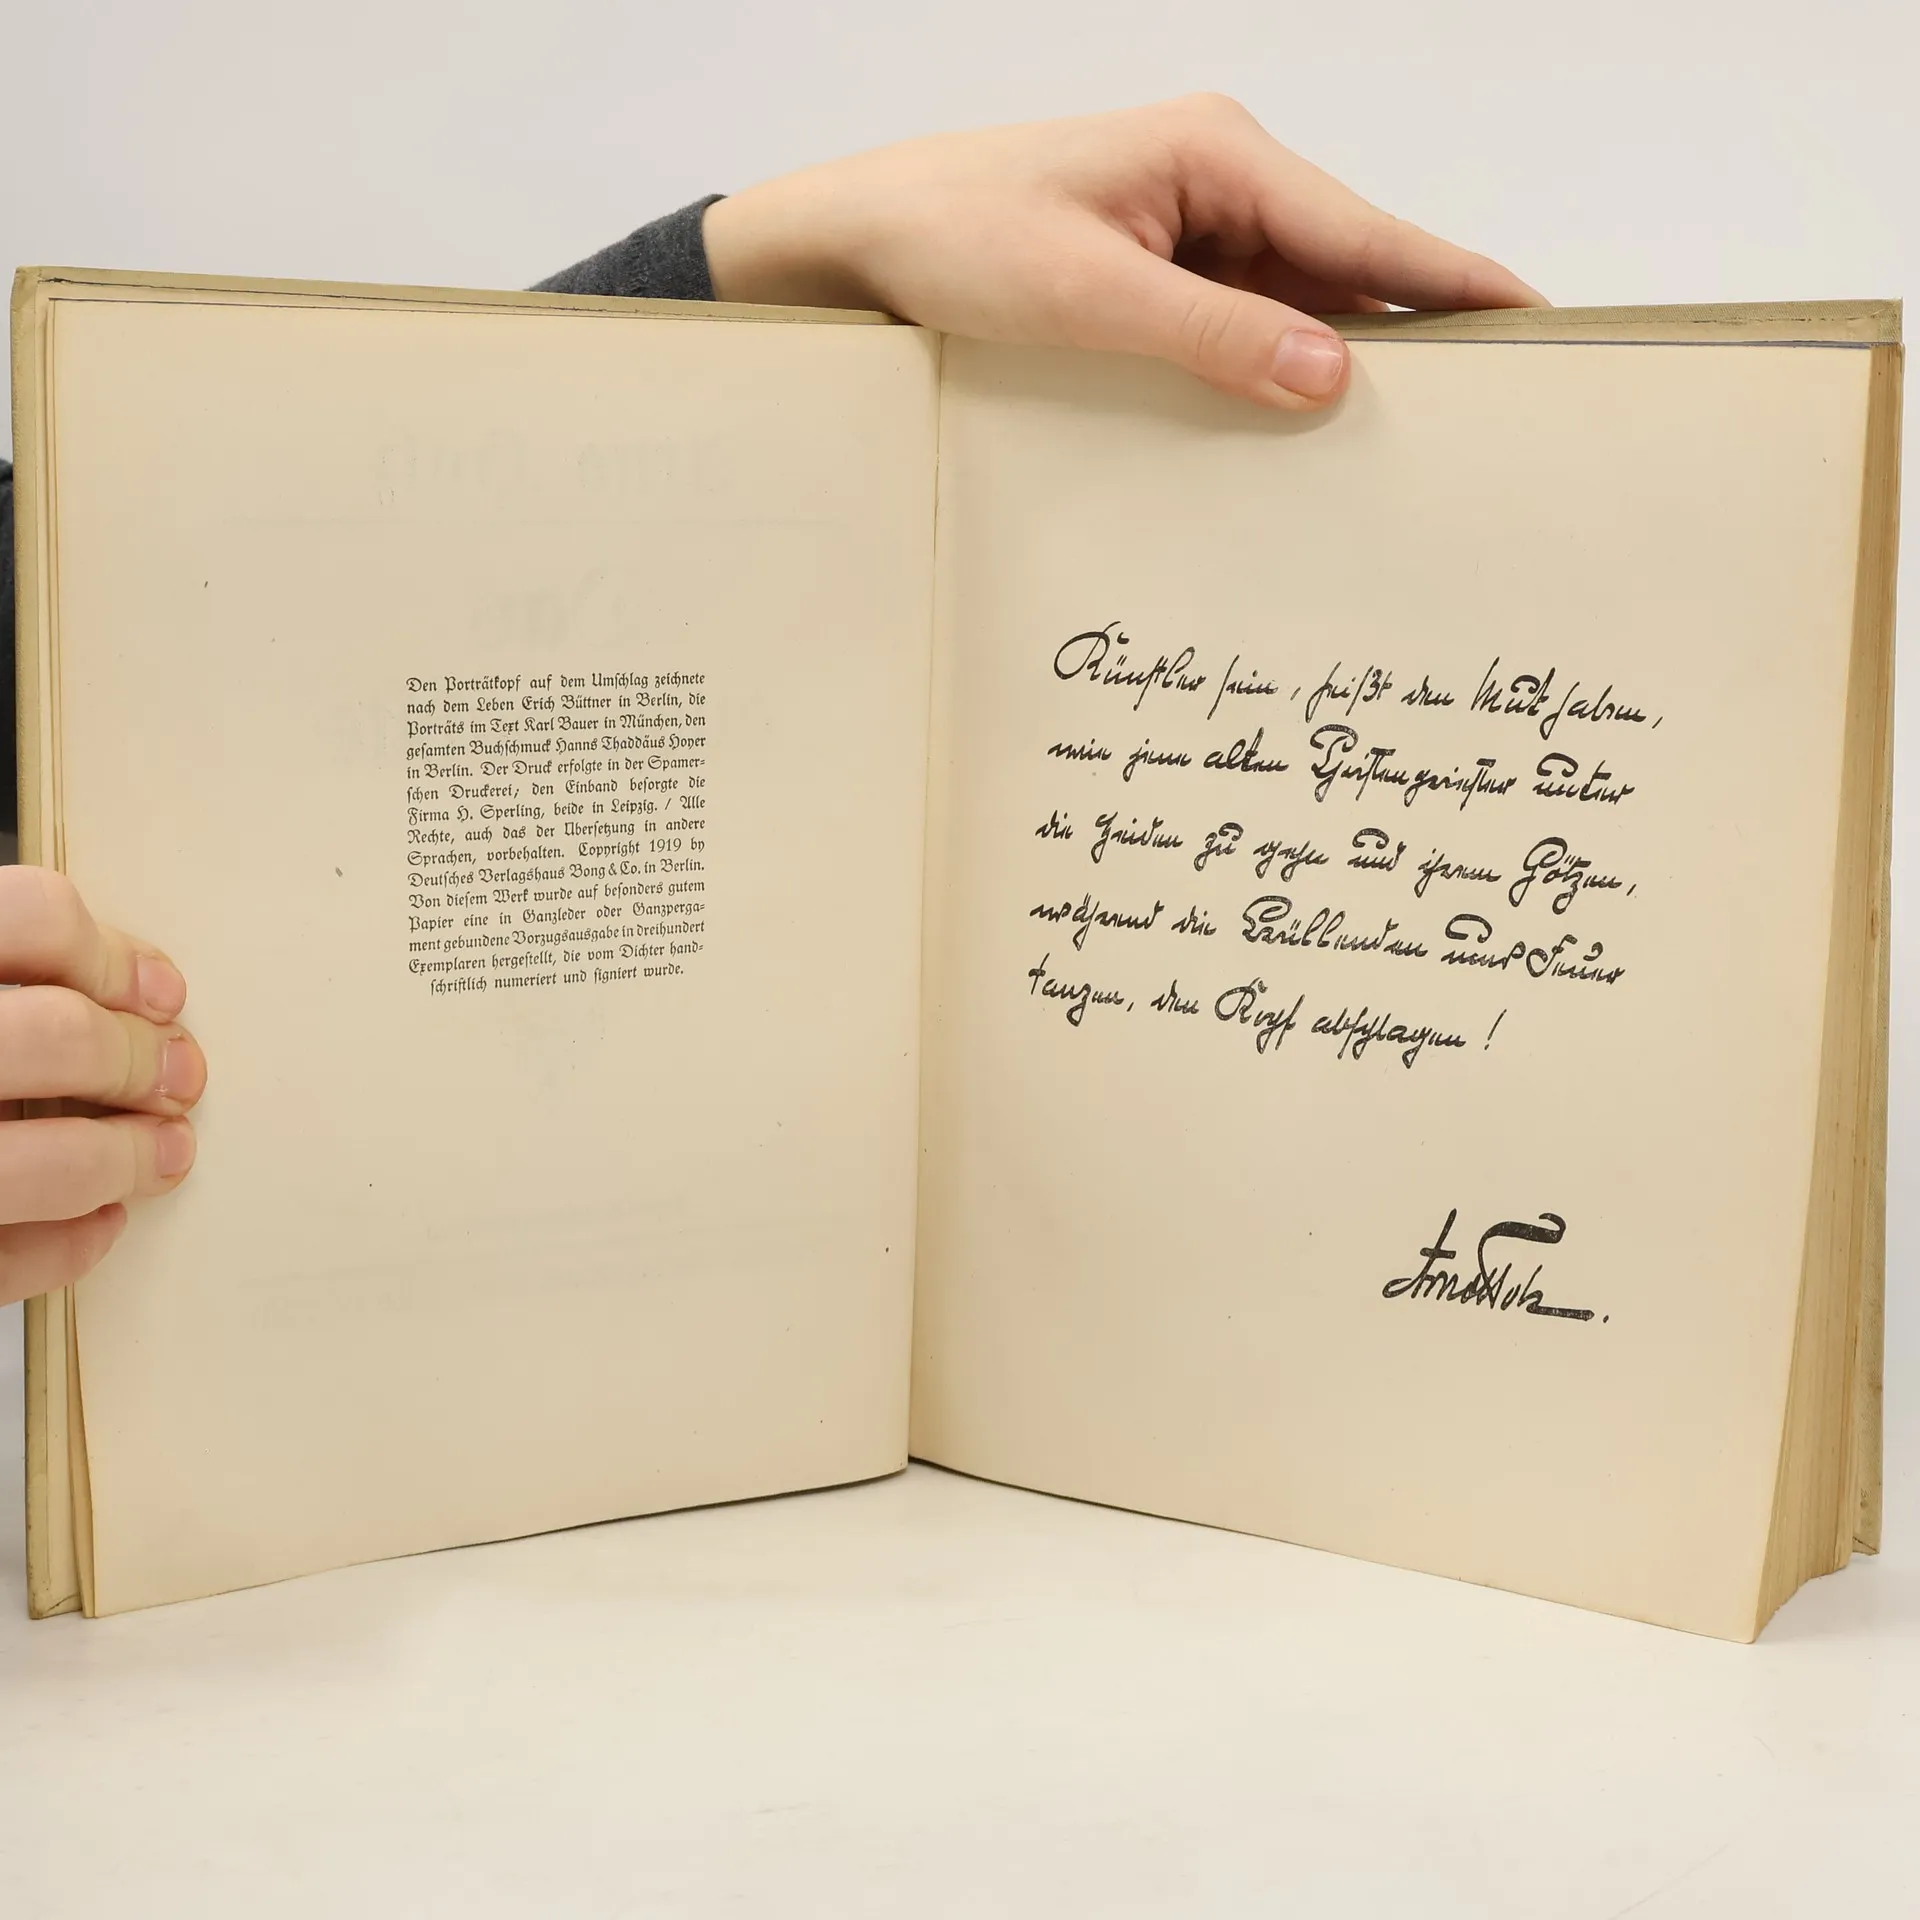 Den Porträtkopf auf dem Umſchlag zeichnete
nach dem Leben Erich Büttner in Berlin, die
Porträts im Text Karl Bauer in München, den
geſamten Buchſchmuck Hanns Thaddäus Hoyer
in Berlin. Der Druck erfolgte in der Spamer-
ſchen Druckerei; den Einband beſorgte die
Firma H. Sperling, beide in Leipzig. / Alle
Rechte, auch das der Überſetzung in andere
Sprachen, vorbehalten. Copyright 1919 by
Deutſches Verlagshaus Bong & Co. in Berlin.
Von dieſem Werk wurde auf beſonders gutem
Papier eine in Ganzleder oder Ganzperga-
ment gebundene Vorzugsausgabe in dreihundert
Exemplaren hergeſtellt, die vom Dichter hand-
ſchriftlich numeriert und ſigniert wurde.
Künſtler ſein, heiſzt den Mut haben,
wie jene alten Chriſtenprieſter unter
die Heiden zu gehn und ihren Götzen,
während die Brüllenden ums Feuer
tanzen, den Kopf abſchlagen!
Arno Holz.